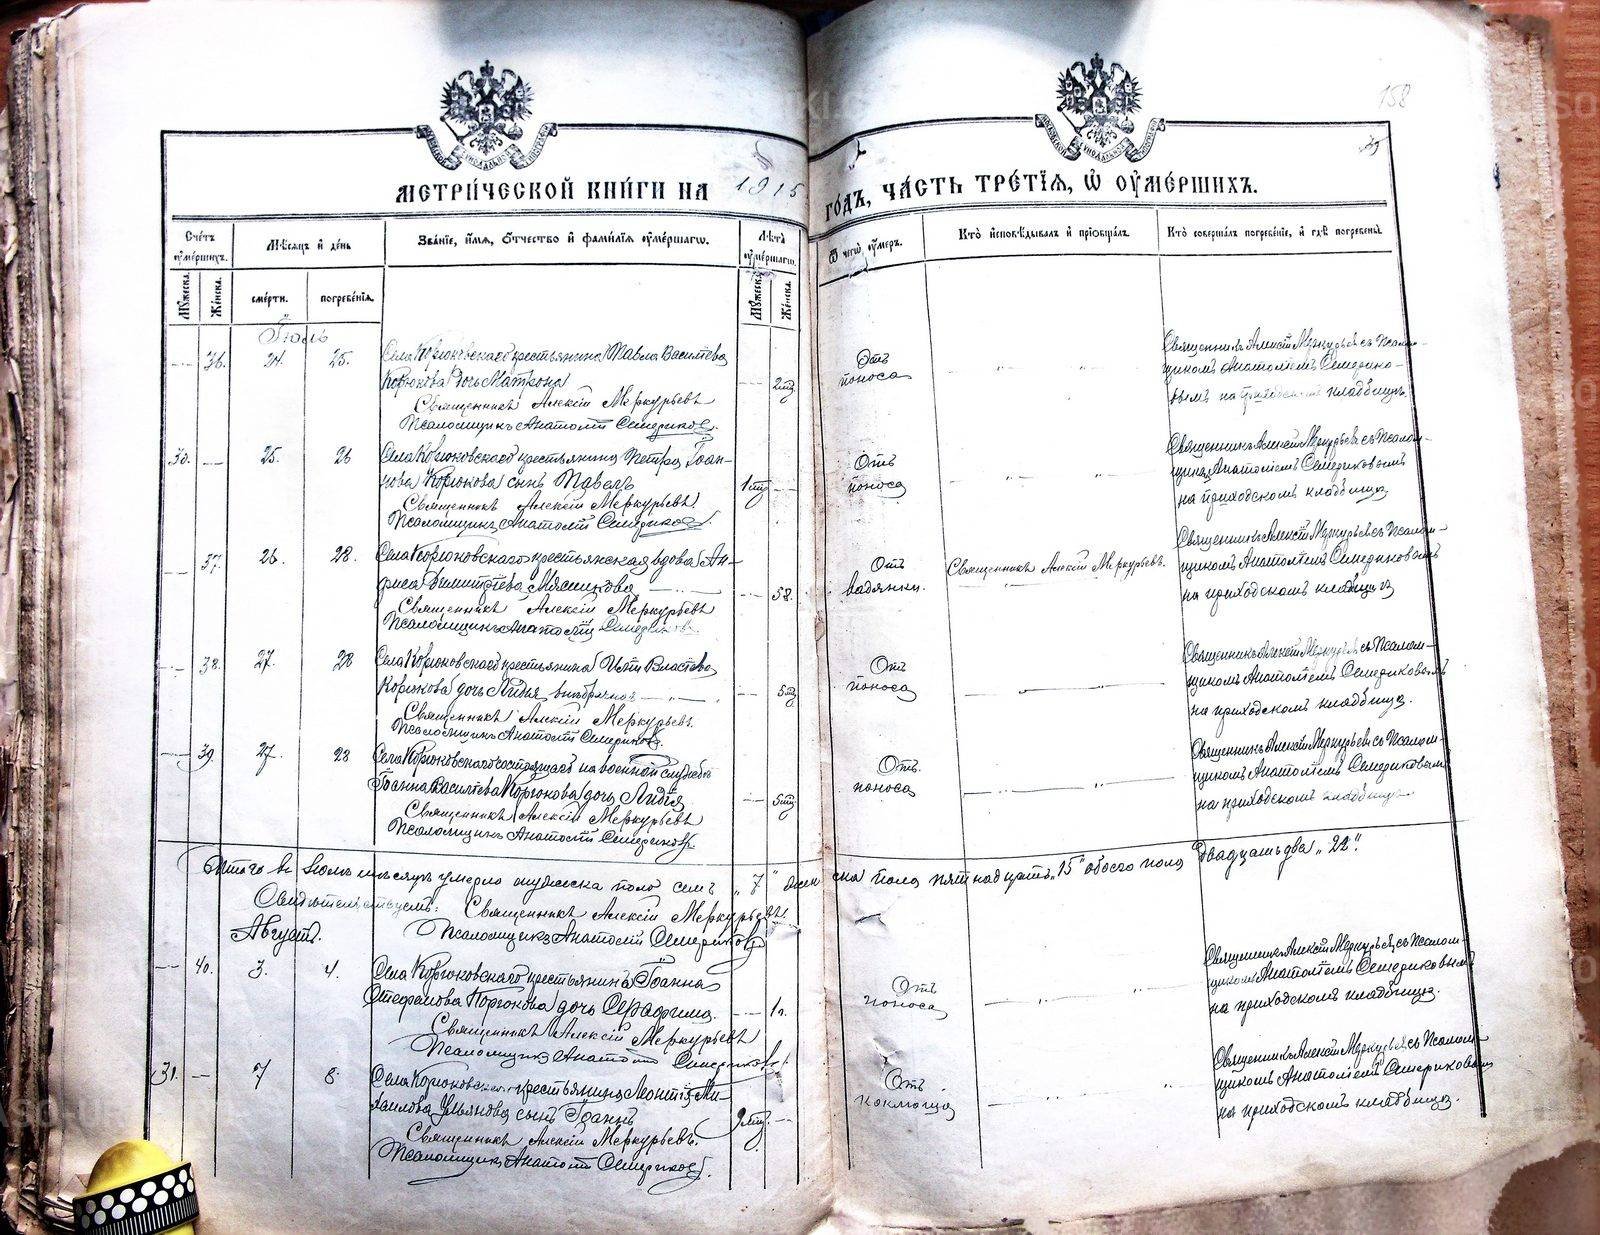 158
МЕТРИ́ЧЕСКОЙ КНИ́ГИ НА 1915 ГО́ДЪ, ЧА́СТЬ ТРЕ́ТІѦ, Ѡ҆ ОУ҆МЕ́РШИХЪ.
Сче́тъ оу҆ме́ршихъ.
Мѣ́сяцъ и҆ де́нь
Зва́ніе, и҆́мя, ѻ҆́тчество и҆ фами́лія оу҆ме́ршагѡ.
Лѣ́та оу҆ме́ршагѡ.
Ѿ чегѡ̀ оу҆́меръ.
Кто̀ и҆сповѣ́дывалъ и҆ пріѡбща́лъ.
Кто̀ соверша́лъ погребе́ніе, и҆ гдѣ̀ погребены̀.
Му́жеска. Же́нска.
сме́рти. погребе́нія
Му́жеска. Же́нска.
Іюль
36. 24. 25. Села Корюковскаго крестьянина Павла Василіева
Корюкова дочь Матрона
Священникъ Алексій Меркурьевъ
Псаломщикъ Анатолій Семериковъ.
Отъ
поноса
Священникъ Алексій Меркурьевъ съ псалом-
щикомъ Анатоліемъ Семерико-
вымъ на приходскомъ кладбищѣ.
30. 25. 26 Села Корюковскаго крестьянина Петра Іоан-
нова Корюкова сынъ Павелъ
Священникъ Алексій Меркурьевъ
Псаломщикъ Анатолій Семериковъ.
Отъ
поноса
Священникъ Алексій Меркурьевъ съ псалом-
щикомъ Анатоліемъ Семериковымъ
на приходскомъ кладбищѣ
37. 26. 28. Села Корюковскаго крестьянская вдова Ан-
фиса Димитріева Мясникова 58.
Священникъ Алексій Меркурьевъ
Псаломщикъ Анатолій Семериковъ.
Отъ
водянки.
Священникъ Алексій Меркурьевъ.
Священникъ Алексій Меркурьевъ съ псалом-
щикомъ Анатоліемъ Семериковымъ
на приходскомъ кладбищѣ
38. 27. 28 Села Корюковскаго крестьянина
Корюкова дочь Лидія
Священникъ Алексій Меркурьевъ
Псаломщикъ Анатолій Семериковъ.
Отъ
поноса
Священникъ Алексій Меркурьевъ съ псалом-
щикомъ Анатоліемъ Семериковымъ
на приходскомъ кладбищѣ.
39. 27. 28 Села Корюковскаго состоящаго на военной службѣ
Іоанна Василіева Корюкова дочь Лидія
Священникъ Алексій Меркурьевъ
Псаломщикъ Анатолій Семериковъ
Отъ
поноса
Священникъ Алексій Меркурьевъ съ псалом-
щикомъ Анатоліемъ Семериковымъ
на приходскомъ кладбищѣ.
Итого въ Іюлѣ мѣсяцѣ умерло мужеска пола семь „7" женска пола пятнадцать „15" обоего пола двадцать два „22".
Свидѣтельствуемъ: Священникъ Алексій Меркурьевъ.
Псаломщикъ Анатолій Семериковъ
Августъ.
40. 3. 4. Села Корюковскаго крестьянина Іоанна
Стефанова Корюкова дочь Серафима. 1г.
Священникъ Алексій Меркурьевъ
Псаломщикъ Анатолій Семериковъ.
Отъ
поноса
Священникъ Алексій Меркурьевъ съ псалом-
щикомъ Анатоліемъ Семериковымъ
на приходскомъ кладбищѣ.
31. 7 8 Села Корюковскаго крестьянина Леонтія Ми-
хаилова Ульянова сынъ Іоаннъ
Священникъ Алексій Меркурьевъ.
Псаломщикъ Анатолій Семериковъ.
Отъ
Священникъ Алексій Меркурьевъ съ псалом-
щикомъ Анатоліемъ Семериковымъ
на приходскомъ кладбищѣ.